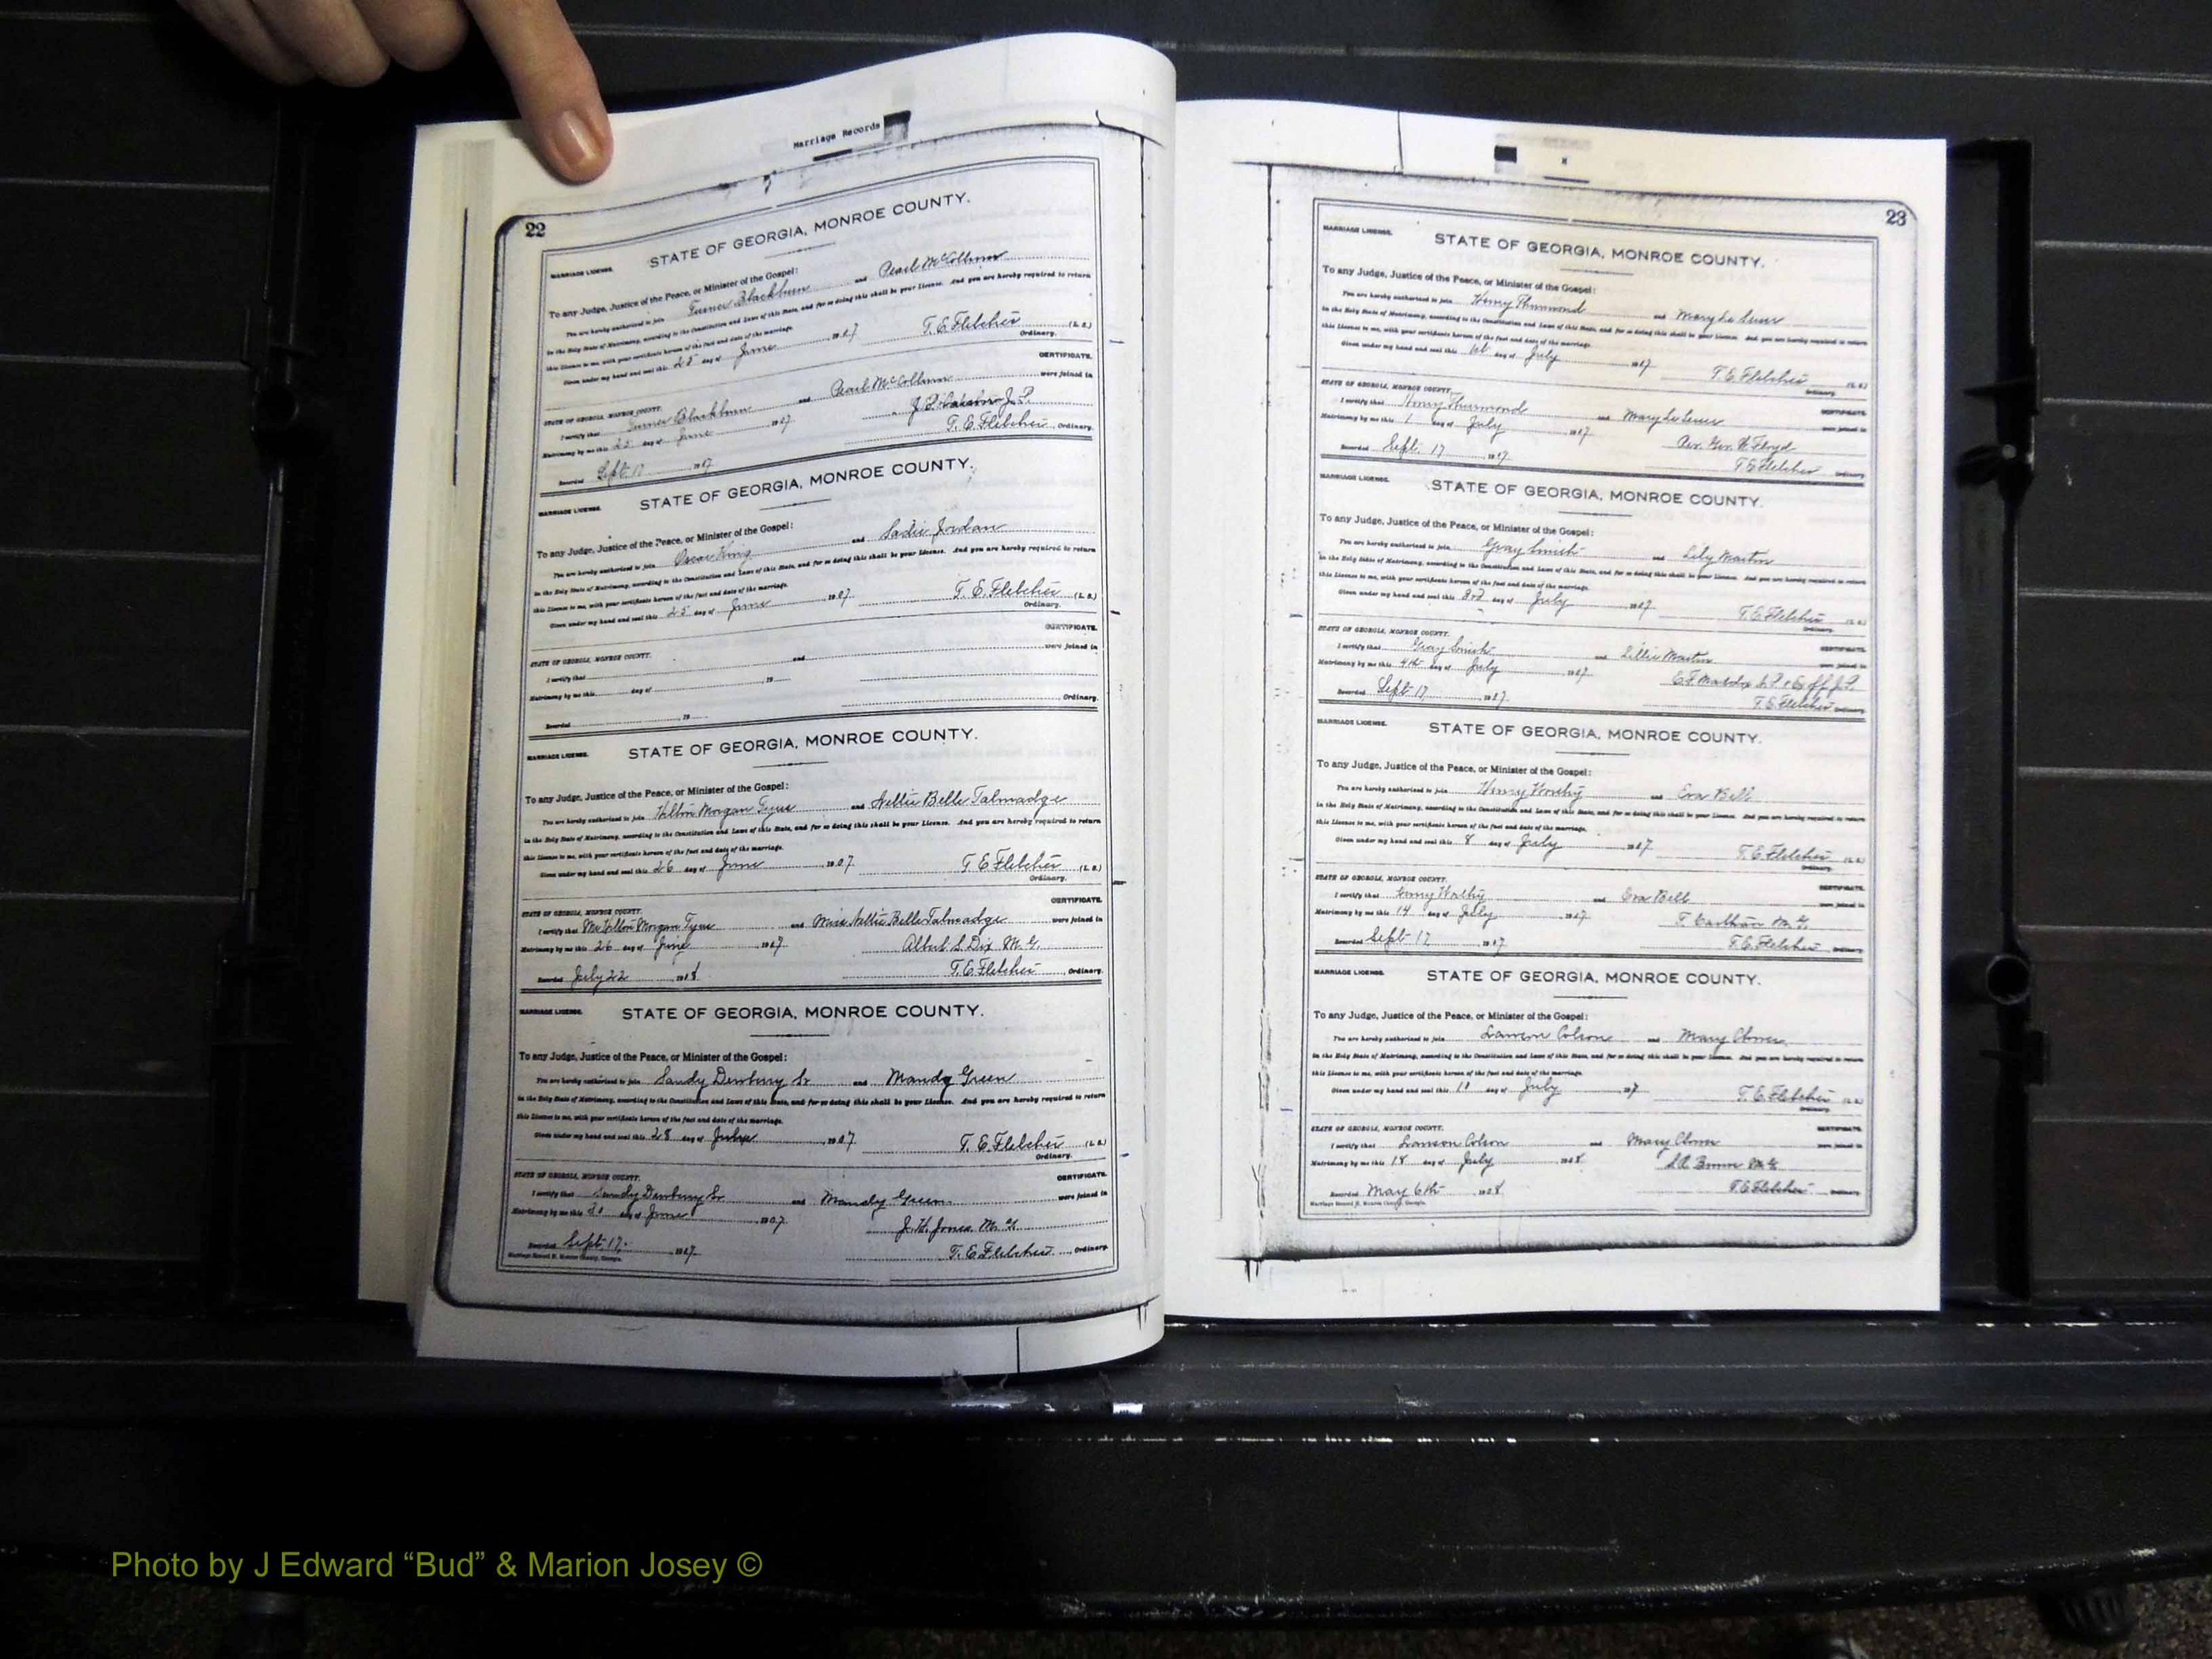 Marriage Records
22
MARRIAGE LICENSE. STATE OF GEORGIA, MONROE COUNTY.
To any Judge, Justice of the Peace, or Minister of the Gospel:
You are hereby authorized to join Turner Blackburn and Pearl McCollum
in the Holy State of Matrimony, according to the Constitution and Laws of this State, and for so doing this shall be your License. And you are hereby required to return
this License to me, with your certificate hereon of the fact and date of the marriage.
Given under my hand and seal this 25 day of June 1907 T. E. Fletcher (L. S.)
Ordinary.
STATE OF GEORGIA, MONROE COUNTY. CERTIFICATE.
I certify that Turner Blackburn and Pearl McCollum were joined in
Matrimony by me this 25 day of June 1907 J. P.
Recorded Sept 17 1907 T. E. Fletcher, Ordinary.
MARRIAGE LICENSE. STATE OF GEORGIA, MONROE COUNTY.
To any Judge, Justice of the Peace, or Minister of the Gospel:
You are hereby authorized to join Oscar King and Sadie Jordan
in the Holy State of Matrimony, according to the Constitution and Laws of this State, and for so doing this shall be your License. And you are hereby required to return
this License to me, with your certificate hereon of the fact and date of the marriage.
Given under my hand and seal this 25 day of June 1907 T. E. Fletcher (L. S.)
Ordinary.
STATE OF GEORGIA, MONROE COUNTY. CERTIFICATE.
I certify that and were joined in
Matrimony by me this day of , 19
Recorded , 19 Ordinary.
MARRIAGE LICENSE. STATE OF GEORGIA, MONROE COUNTY.
To any Judge, Justice of the Peace, or Minister of the Gospel:
You are hereby authorized to join Hilton Morgan Tyus and Nellie Belle Talmadge
in the Holy State of Matrimony, according to the Constitution and Laws of this State, and for so doing this shall be your License. And you are hereby required to return
this License to me, with your certificate hereon of the fact and date of the marriage.
Given under my hand and seal this 26 day of June 1907 T. E. Fletcher (L. S.)
Ordinary.
STATE OF GEORGIA, MONROE COUNTY. CERTIFICATE.
I certify that Mr Hilton Morgan Tyus and Miss Nellie Belle Talmadge were joined in
Matrimony by me this 26 day of June 1907 Albert S. Dix M. G.
Recorded July 22 1908 T. E. Fletcher, Ordinary.
MARRIAGE LICENSE. STATE OF GEORGIA, MONROE COUNTY.
To any Judge, Justice of the Peace, or Minister of the Gospel:
You are hereby authorized to join Sandy Dewberry Sr and Mandy Green
in the Holy State of Matrimony, according to the Constitution and Laws of this State, and for so doing this shall be your License. And you are hereby required to return
this License to me, with your certificate hereon of the fact and date of the marriage.
Given under my hand and seal this 28 day of 1907 T. E. Fletcher (L. S.)
Ordinary.
STATE OF GEORGIA, MONROE COUNTY. CERTIFICATE.
I certify that Sandy Dewberry Sr and Mandy Green were joined in
Matrimony by me this day of June 1907 J. H. Jones M. G.
Recorded Sept. 17. 1907 T. E. Fletcher, Ordinary.
Marriage Record H. Monroe County, Georgia.
23
MARRIAGE LICENSE. STATE OF GEORGIA, MONROE COUNTY.
To any Judge, Justice of the Peace, or Minister of the Gospel:
You are hereby authorized to join Henry Thurmond and Mary Le Seuer
in the Holy State of Matrimony, according to the Constitution and Laws of this State, and for so doing this shall be your License. And you are hereby required to return
this License to me, with your certificate hereon of the fact and date of the marriage.
Given under my hand and seal this 1st day of July 1907 T. E. Fletcher (L. S.)
Ordinary.
STATE OF GEORGIA, MONROE COUNTY. CERTIFICATE.
I certify that Henry Thurmond and Mary Le Seuer were joined in
Matrimony by me this 1 day of July 1907 Rev. Geo. W. Floyd
Recorded Sept. 17 1907 T. E. Fletcher Ordinary.
MARRIAGE LICENSE. STATE OF GEORGIA, MONROE COUNTY.
To any Judge, Justice of the Peace, or Minister of the Gospel:
You are hereby authorized to join Gray Smith and Lily Martin
in the Holy State of Matrimony, according to the Constitution and Laws of this State, and for so doing this shall be your License. And you are hereby required to return
this License to me, with your certificate hereon of the fact and date of the marriage.
Given under my hand and seal this 3rd day of July 1907 T. E. Fletcher (L. S.)
Ordinary.
STATE OF GEORGIA, MONROE COUNTY. CERTIFICATE.
I certify that Gray Smith and Lillie Martin were joined in
Matrimony by me this 4th day of July 1907 Maddox J. P.
Recorded Sept 17 1907 T. E. Fletcher Ordinary.
MARRIAGE LICENSE. STATE OF GEORGIA, MONROE COUNTY.
To any Judge, Justice of the Peace, or Minister of the Gospel:
You are hereby authorized to join Henry Worthy and Eva Bell
in the Holy State of Matrimony, according to the Constitution and Laws of this State, and for so doing this shall be your License. And you are hereby required to return
this License to me, with your certificate hereon of the fact and date of the marriage.
Given under my hand and seal this 8 day of July 1907 T. E. Fletcher (L. S.)
STATE OF GEORGIA, MONROE COUNTY. CERTIFICATE.
I certify that Henry Worthy and Eva Bell were joined in
Matrimony by me this 14 day of July 1907 M. G.
Recorded Sept 17 1907 T. E. Fletcher Ordinary.
MARRIAGE LICENSE. STATE OF GEORGIA, MONROE COUNTY.
To any Judge, Justice of the Peace, or Minister of the Gospel:
You are hereby authorized to join Lawson Colson and Mary
in the Holy State of Matrimony, according to the Constitution and Laws of this State, and for so doing this shall be your License. And you are hereby required to return
this License to me, with your certificate hereon of the fact and date of the marriage.
Given under my hand and seal this day of July 1907 T. E. Fletcher (L. S.)
Ordinary.
STATE OF GEORGIA, MONROE COUNTY. CERTIFICATE.
I certify that Lawson Colson and Mary were joined in
Matrimony by me this 18 day of July 1908 M. G.
Recorded May 6th 1908 T. E. Fletcher Ordinary.
Marriage Record H. Monroe County, Georgia.
Photo by J Edward “Bud” & Marion Josey ©